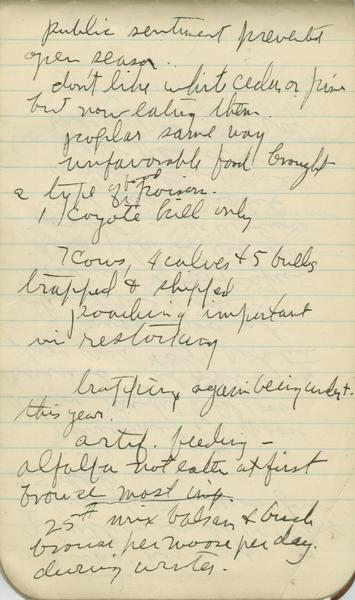 public sentiment prevented
open season.
don't like white cedar or pine
but now eating them.
poplar same way
unfavorable food brought
a type of poison.
1 coyote kill only
7 cows, 4 calves & 5 bulls
trapped & shipped
poaching important
in
trapping again being
this year.
artif. feeding –
alfalfa not eaten at first
browse most imp.
25# mix balsam & birch
browse per moose per day.
during winter.